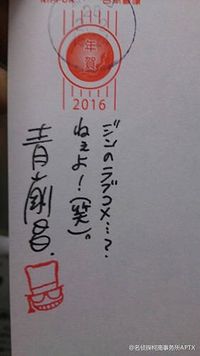 NIPPON
年賀
2016
ジンのラブコメ…?
ねぇよ!(笑)。
青山剛昌.
@名侦探柯南事务所APTX